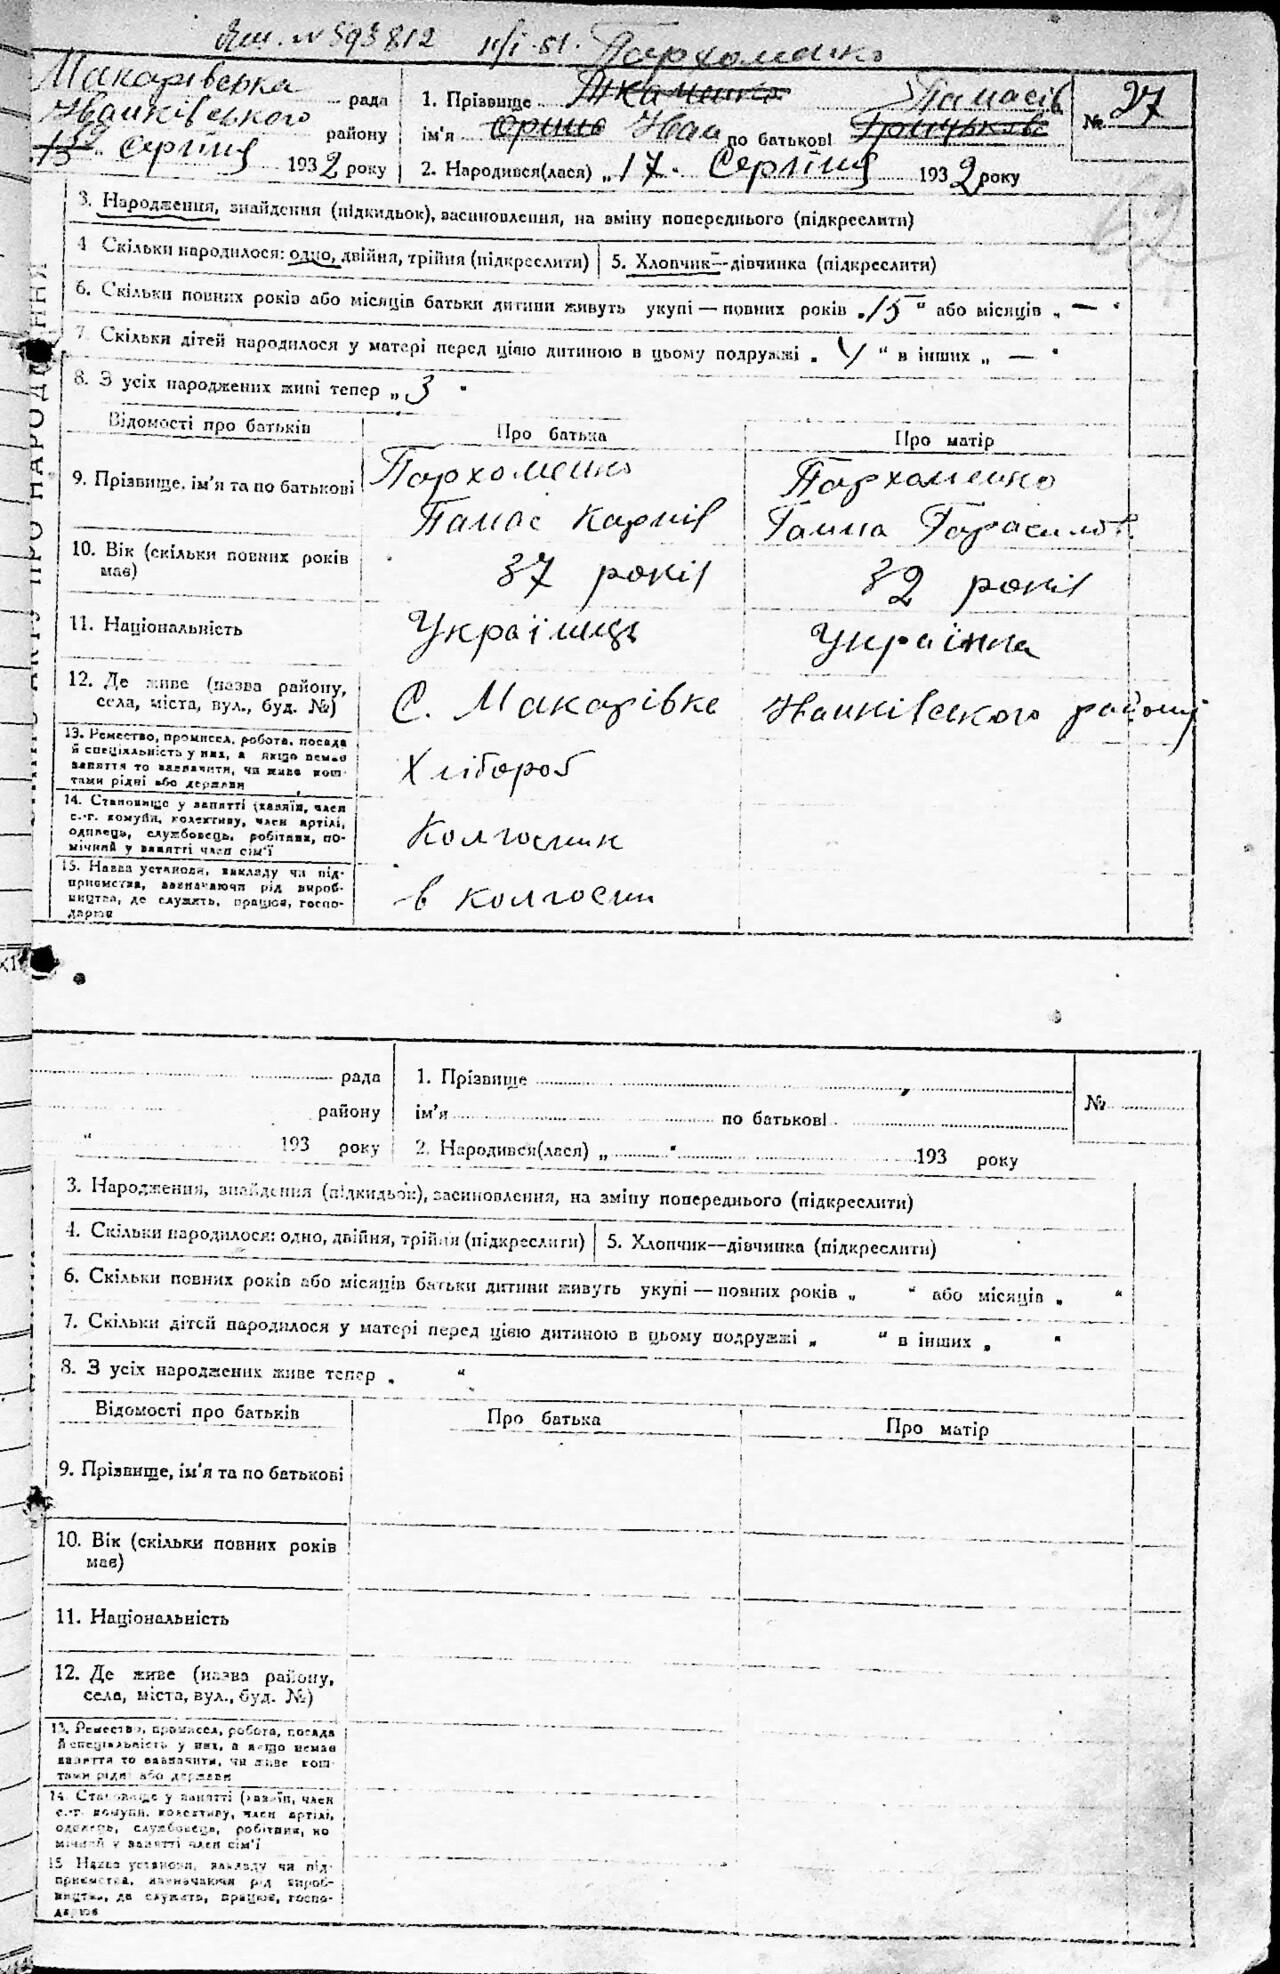 № 593812 11/I-51. Пархоменко
Макарівська рада
Іванківського району
19 Серпня 1932 року
1. Прізвище Ткаченко
Панасів
ім'я Іван по батькові
2. Народився(лася) „17. Серпня 1932 року
№ 27
62
3. Народження, знайдення (підкидьок), засиновлення, на зміну попереднього (підкреслити)
4 Скільки народилося: одно, двійня, трійня (підкреслити) 5. Хлопчик—дівчинка (підкреслити)
6. Скільки повних років або місяців батьки дитини живуть укупі — повних років „15“ або місяців „—“
7. Скільки дітей народилося у матері перед цією дитиною в цьому подружжі „4“ в інших „—“
8. З усіх народжених живі тепер „3“
Відомості про батьків Про батька Про матір
9. Прізвище, ім'я та по батькові Пархоменко Пархоменко
Панас Карпів Ганна Гарасимов.
10. Вік (скільки повних років має) 37 років 32 років
11. Національність Українець Українка
12. Де живе (назва району, села, міста, вул., буд. №) С. Макарівка Іванківського району
13. Ремество, промисел, робота, посада
й спеціяльність у них, а якщо немає
заняття то зазначити, чи живе кош-
тами рідні або держави
Хлібороб
14. Становище у занятті (хазяїн, член
с.-г. комуни, колективу, член артілі,
одинець, службовець, робітник, по-
мічний у занятті член сім'ї
Колгоспник
15. Назва установи, закладу чи під-
приємства, зазначаючи рід вироб-
ництва, де служить, працює, госпо-
дарює
в колгоспи
рада
району
“ 193 року
1. Прізвище
ім'я по батькові
2. Народився(лася) „ “ 193 року
№
3. Народження, знайдення (підкидьок), засиновлення, на зміну попереднього (підкреслити)
4. Скільки народилося: одно, двійня, трійня (підкреслити) 5. Хлопчик—дівчинка (підкреслити)
6. Скільки повних років або місяців батьки дитини живуть укупі — повних років „ “ або місяців „ “
7. Скільки дітей народилося у матері перед цією дитиною в цьому подружжі „ “ в інших „ “
8. З усіх народжених живе тепер „ “
Відомості про батьків Про батька Про матір
9. Прізвище, ім'я та по батькові
10. Вік (скільки повних років
має)
11. Національність
12. Де живе (назва району,
села, міста, вул., буд. №)
13. Ремество, промисел, робота, посада
й спеціяльність у них, а якщо немає
заняття то зазначити, чи живе кош-
тами рідні або держави
14. Становище у занятті (хазяїн, член
с.-г. комуни, колективу, член артілі,
одинець, службовець, робітник, по-
мічний у занятті член сім'ї
15 Назва установи, закладу чи під-
приємства, зазначаючи рід вироб-
ництва, де служить, працює, госпо-
дарює